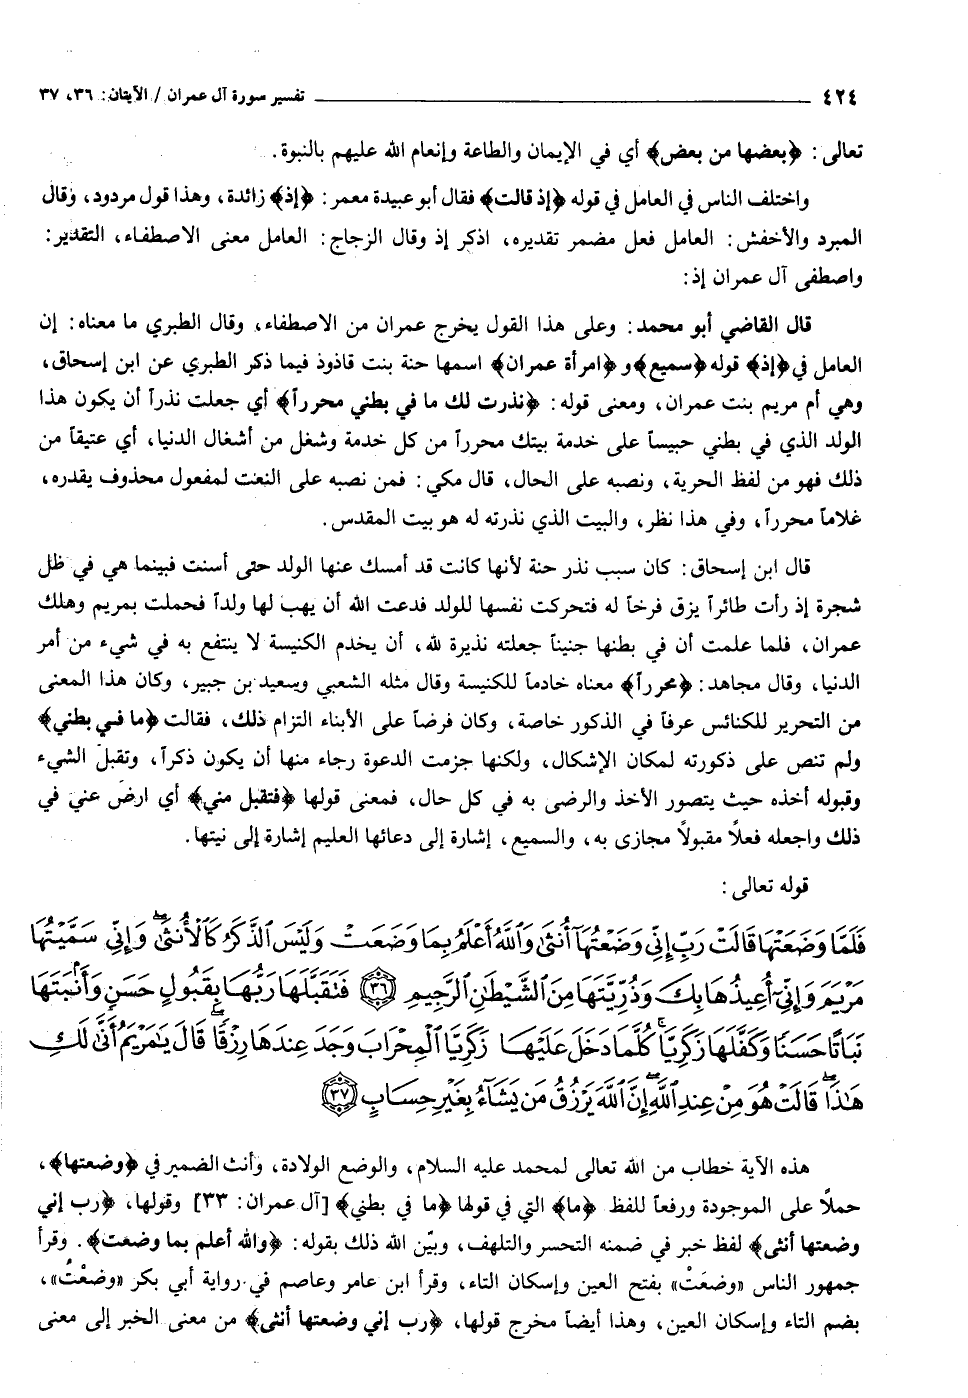 ٤٢٤ ــــــــ تفسير سورة آل عمران / الآيتان: ٣٦، ٣٧
تعالى: ﴿بعضها من بعض﴾ أي في الإيمان والطاعة وإنعام الله عليهم بالنبوة.
واختلف الناس في العامل في قوله ﴿إذ قالت﴾ فقال أبو عبيدة معمر: ﴿إذ﴾ زائدة، وهذا قول مردود، وقال
المبرد والأخفش: العامل فعل مضمر تقديره، اذكر إذ وقال الزجاج: العامل معنى الاصطفاء، التقدير:
واصطفى آل عمران إذ:
قال القاضي أبو محمد: وعلى هذا القول يخرج عمران من الاصطفاء، وقال الطبري ما معناه: إن
العامل في ﴿إذ﴾ قوله ﴿سميع﴾ و ﴿امرأة عمران﴾ اسمها حنة بنت قاذوذ فيما ذكر الطبري عن ابن إسحاق،
وهي أم مريم بنت عمران، ومعنى قوله: ﴿نذرت لك ما في بطني محرراً﴾ أي جعلت نذراً أن يكون هذا
الولد الذي في بطني حبيساً على خدمة بيتك محرراً من كل خدمة وشغل من أشغال الدنيا، أي عتيقاً من
ذلك فهو من لفظ الحرية، ونصبه على الحال، قال مكي: فمن نصبه على النعت لمفعول محذوف يقدره،
غلاماً محرراً، وفي هذا نظر، والبيت الذي نذرته له هو بيت المقدس.
قال ابن إسحاق: كان سبب نذر حنة لأنها كانت قد أمسك عنها الولد حتى أسنت فبينما هي في ظل
شجرة إذ رأت طائراً يزق فرخاً له فتحركت نفسها للولد فدعت الله أن يهب لها ولداً فحملت بمريم وهلك
عمران، فلما علمت أن في بطنها جنيناً جعلته نذيرة لله، أن يخدم الكنيسة لا ينتفع به في شيء من أمر
الدنيا، وقال مجاهد: ﴿محرراً﴾ معناه خادماً للكنيسة وقال مثله الشعبي وسعيد بن جبير، وكان هذا المعنى
من التحرير للكنائس عرفاً في الذكور خاصة، وكان فرضاً على الأبناء التزام ذلك، فقالت ﴿ما في بطني﴾
ولم تنص على ذكورته لمكان الإشكال، ولكنها جزمت الدعوة رجاء منها أن يكون ذكراً، وتقبلَ الشيء
وقبوله أخذه حيث يتصور الأخذ والرضى به في كل حال، فمعنى قولها ﴿فتقبل مني﴾ أي ارضَ عني في
ذلك واجعله فعلاً مقبولاً مجازى به، والسميع، إشارة إلى دعائها العليم إشارة إلى نيتها.
قوله تعالى:
فَلَمَّا وَضَعَتْهَا قَالَتْ رَبِّ إِنِّي وَضَعْتُهَآ أُنثَىٰ وَٱللَّهُ أَعْلَمُ بِمَا وَضَعَتْ وَلَيْسَ ٱلذَّكَرُ كَٱلْأُنثَىٰ ۖ وَإِنِّي سَمَّيْتُهَا
مَرْيَمَ وَإِنِّيٓ أُعِيذُهَا بِكَ وَذُرِّيَّتَهَا مِنَ ٱلشَّيْطَٰنِ ٱلرَّجِيمِ ﴿٣٦﴾ فَتَقَبَّلَهَا رَبُّهَا بِقَبُولٍ حَسَنٍ وَأَنۢبَتَهَا
نَبَاتًا حَسَنًا وَكَفَّلَهَا زَكَرِيَّا ۖ كُلَّمَا دَخَلَ عَلَيْهَا زَكَرِيَّا ٱلْمِحْرَابَ وَجَدَ عِندَهَا رِزْقًا ۖ قَالَ يَٰمَرْيَمُ أَنَّىٰ لَكِ
هَٰذَا ۖ قَالَتْ هُوَ مِنْ عِندِ ٱللَّهِ ۖ إِنَّ ٱللَّهَ يَرْزُقُ مَن يَشَآءُ بِغَيْرِ حِسَابٍ ﴿٣٧﴾
هذه الآية خطاب من الله تعالى لمحمد عليه السلام، والوضع الولادة، وأنث الضمير في ﴿وضعتها﴾،
حملاً على الموجودة ورفعاً للفظ ﴿ما﴾ التي في قولها ﴿ما في بطني﴾ [آل عمران: ٣٣] وقولها، ﴿رب إني
وضعتها أنثى﴾ لفظ خبر في ضمنه التحسر والتلهف، وبيّن الله ذلك بقوله: ﴿والله أعلم بما وضعت﴾. وقرأ
جمهور الناس «وضعَتْ» بفتح العين وإسكان التاء، وقرأ ابن عامر وعاصم في رواية أبي بكر «وضعْتُ»،
بضم التاء وإسكان العين، وهذا أيضاً مخرج قولها، ﴿رب إني وضعتها أنثى﴾ من معنى الخبر إلى معنى